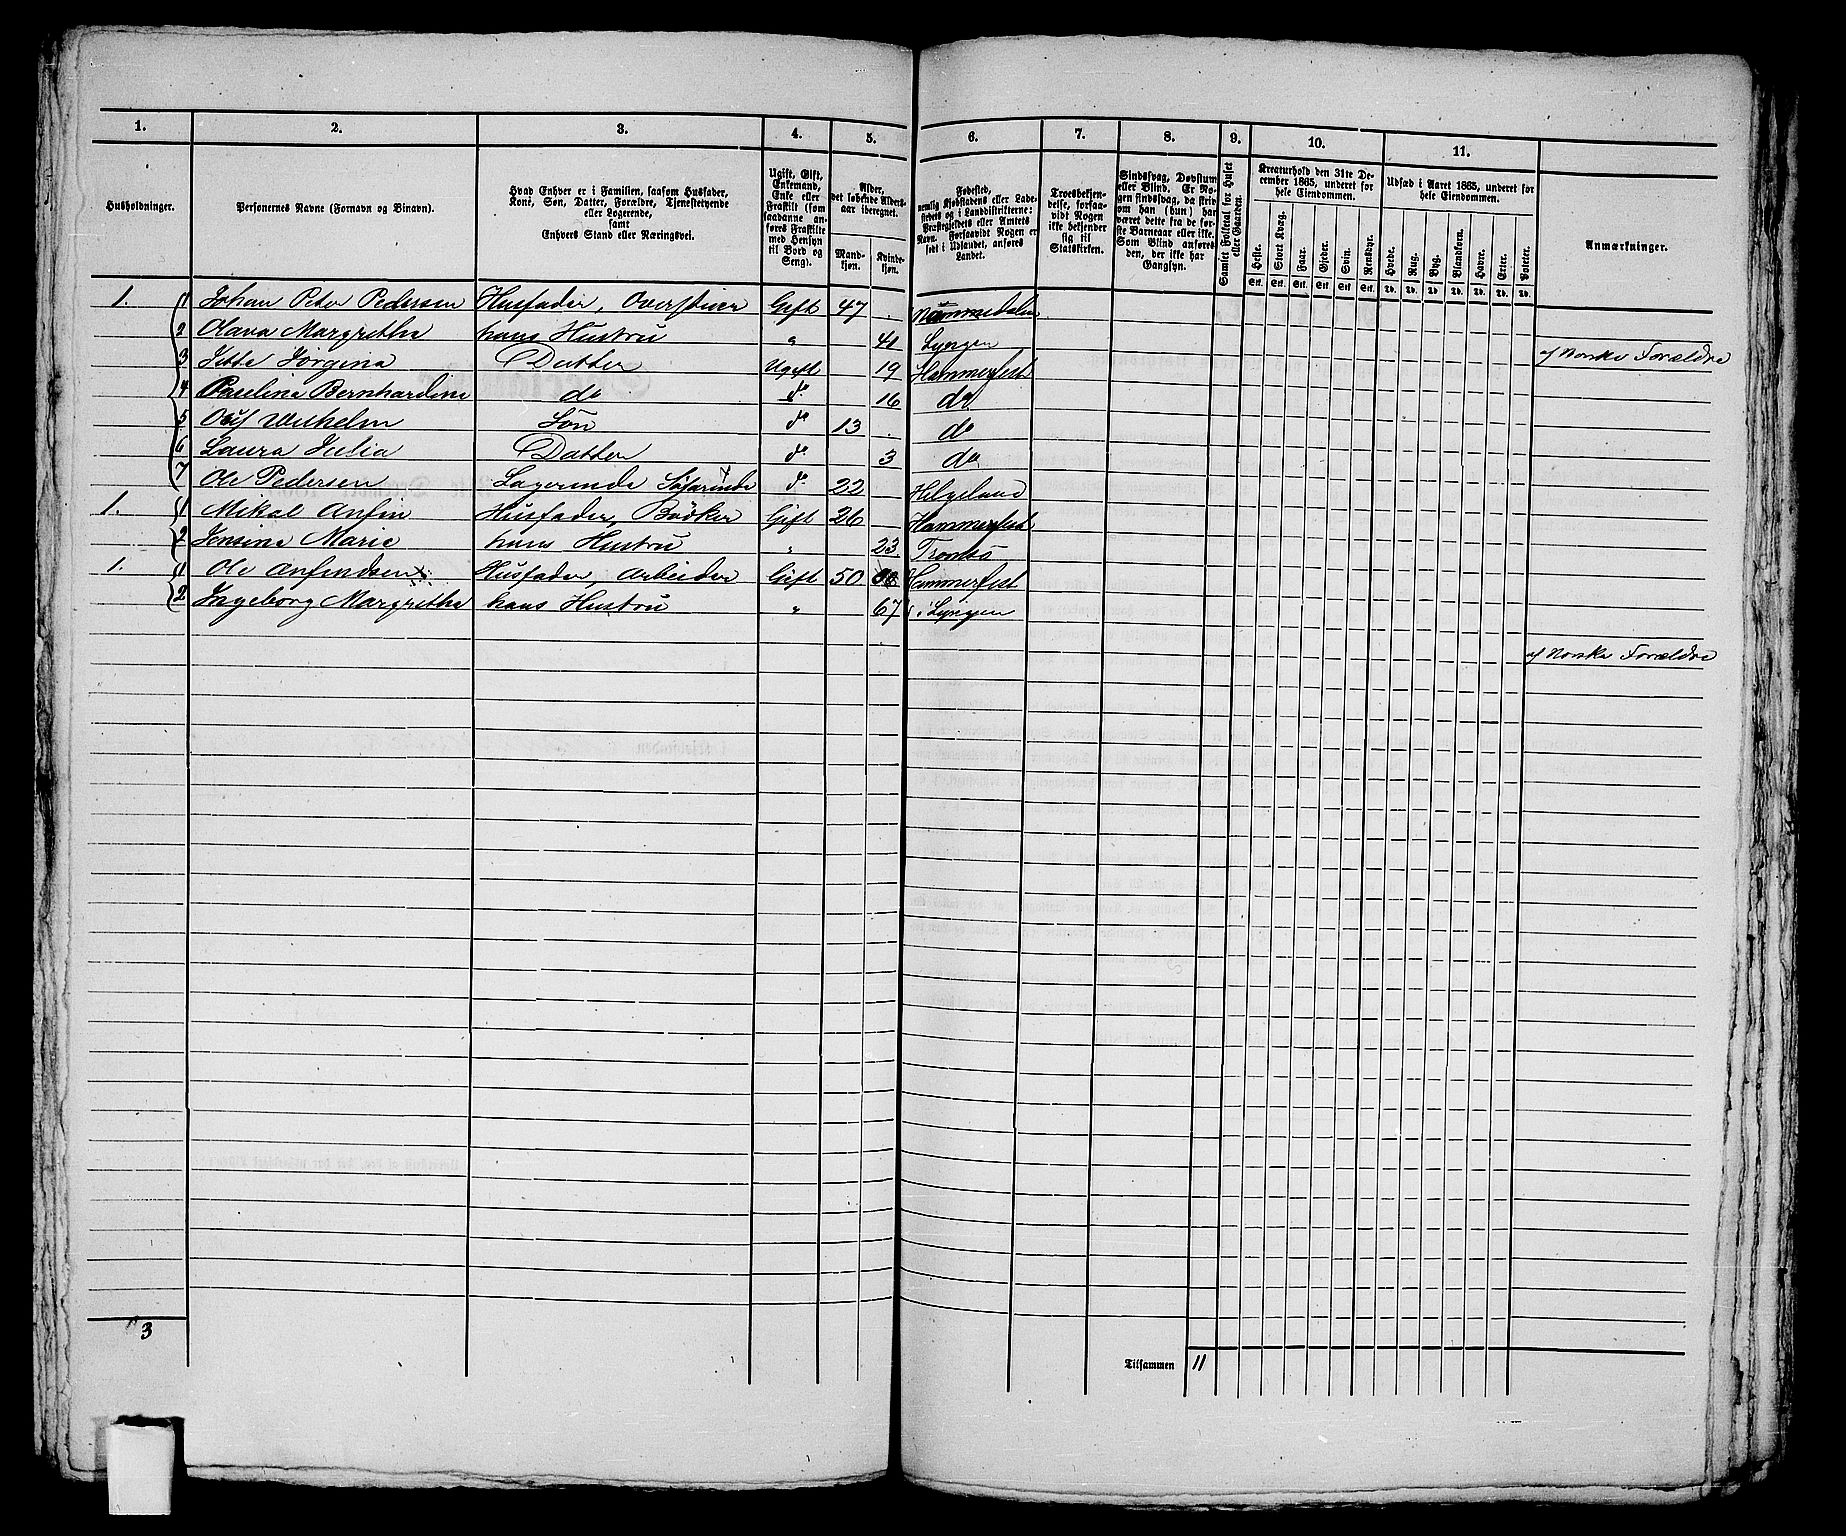 1. 2. 3. 4. 5. 6. 7. 8. 9. 10. 11.
Husholdninger.
Personernes Navne (Fornavn og Binavn).
Hvad Enhver er i Familien, saasom Husfader,
Kone, Søn, Datter, Forældre, Tjenestetyende
eller Logerende,
samt
Enhvers Stand eller Næringsvei.
Ugift, Gift,
Enkemand,
Enke eller
Fraskilt (som
saadanne an-
føres Fraskilte
med Hensyn
til Bord og
Seng).
Alder,
det løbende Alders-
aar iberegnet.
Mand-
kjøn.
Kvinde-
kjøn.
Fødested,
nemlig Kjøbstadens eller Lade-
stedets og i Landdistrikterne:
Præstegjeldets eller Amtets
Navn. Forsaavidt Nogen er
født i Udlandet, anføres
Landet.
Troesbekjen-
delse, forsaa-
vidt Nogen
ikke bekjender
sig til
Statskirken.
Sindssvag, Døvstum
eller Blind. Er No-
gen sindssvag, da skriv
om han (hun) har
været dette fra de før-
ste Barneaar eller ikke.
Som Blind anføres
den, der ikke har
Gangsyn.
Samlet Folketal for Huset
eller Gaarden.
Kreaturhold den 31te De-
cember 1865, underet for
hele Eiendommen.
Heste. Stort Kvæg. Faar. Gjeder. Svin. Rensdyr.
Stk. Stk. Stk. Stk. Stk. Stk.
Udsæd i Aaret 1865, underet for
hele Eiendommen.
Hvede. Rug. Byg. Blandkorn. Havre. Erter. Poteter.
Td. Td. Td. Td. Td. Td. Td.
Anmærkninger.
1. 1 Johan Peter Pedersen Husfader, Gift 47 Nammedalen
2 Olava Margrethe hans Hustru " 41 Lyngen af Norske Forældre
3 Jette Jørgina Datter Ugift 19 Hammerfest
4 Bernhardine do do 16 do
5 Oluf Wilhelm Søn do 13 do
6 Laura Julia Datter do 3 do
7 Ole Pedersen do 22 Helgeland
1. 1 Mikal Anfin Husfader, Bødker Gift 26 Hammerfest
2 Jensine Marie hans Hustru " 23 Tromsø
1. 1 Ole Anfindsen Husfader, Arbeider Gift 50 Hammerfest
2 Ingeborg Margrethe hans Hustru " 67 Lyngen
af Norske Forældre
3
Tilsammen 11